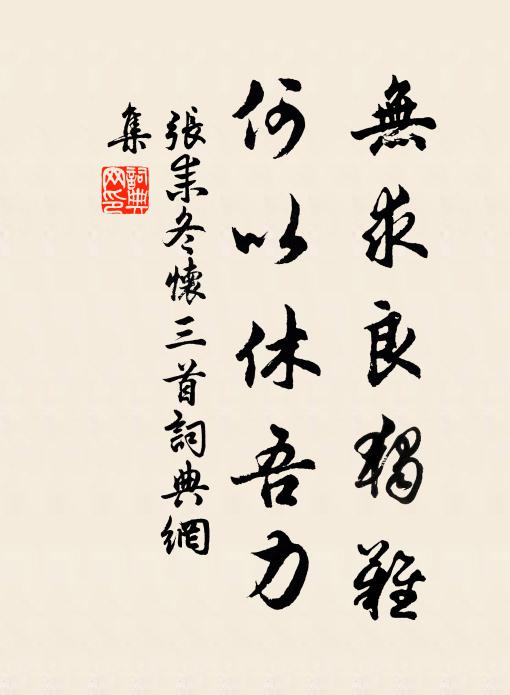 無求良獨難
何以休吾力
張耒冬懷三首詞典網
集
詞典網印